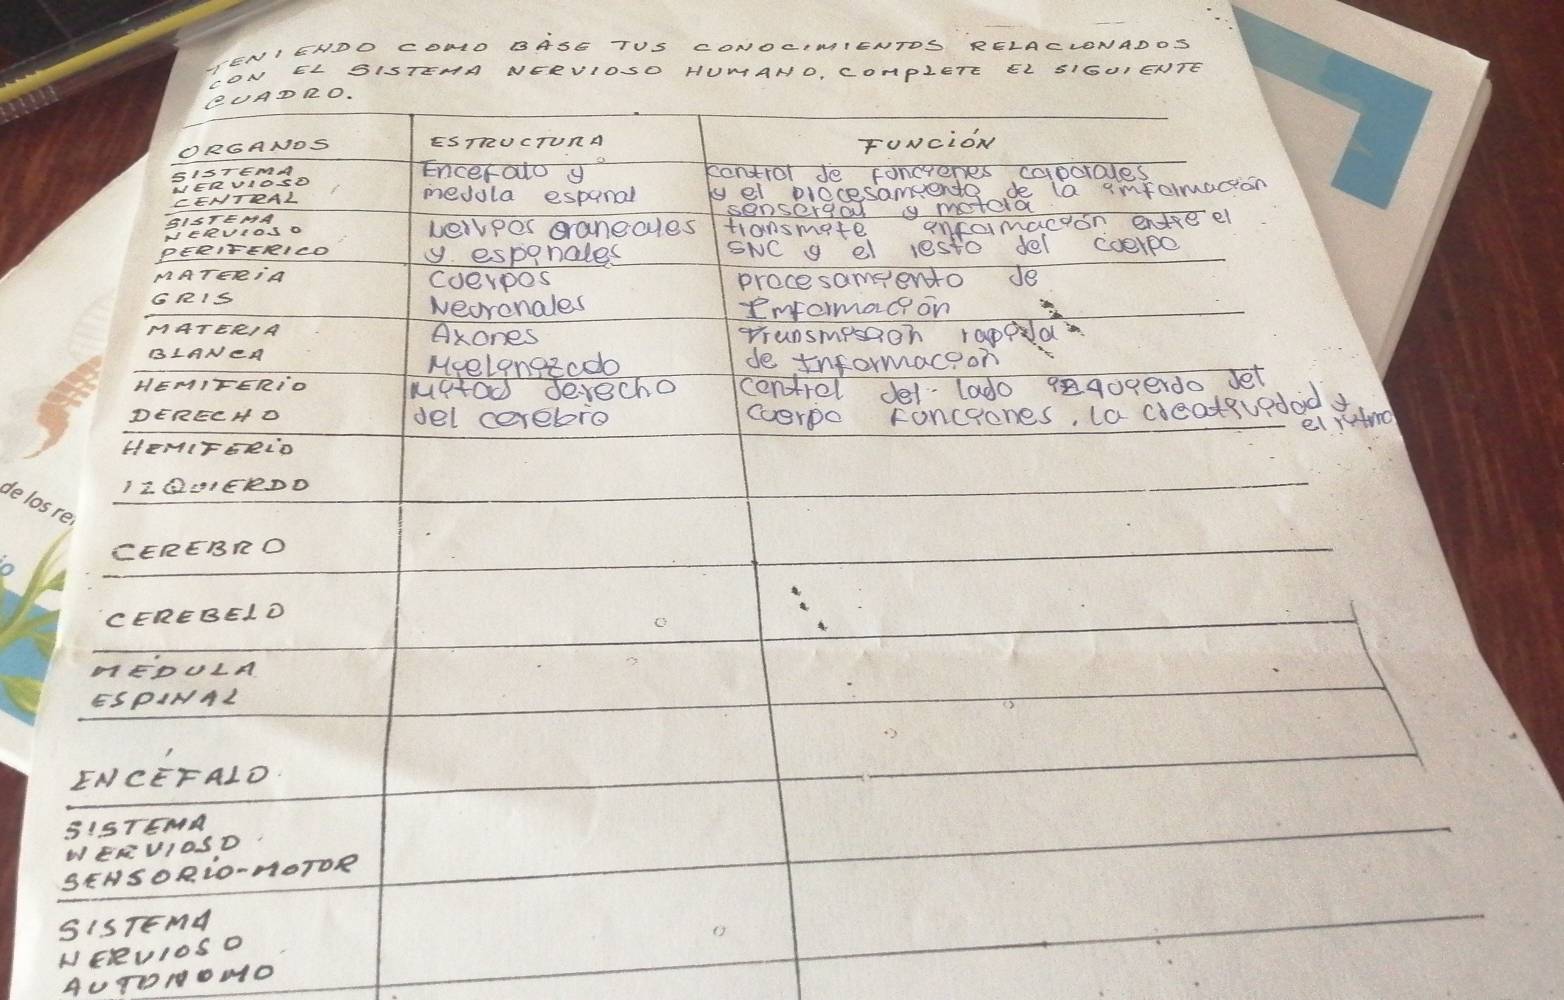 TENIENDO COMO BASE TUS CONOCIMIENTOS RELACIONADOS
CON EL SISTEMA NERVIOSO HUMANO, COMPLETE EL SIGUIENTE
CUADRO.
ORGANOS ESTRUCTURA FUNCIÓN
SISTEMA NERVIOSO CENTRAL
Encefalo y
medula espinal
control de funciones corporales
y el procesamiento de la imformación
senserial y motora
SISTEMA NERVIOSO PERIFERICO
nervios craneales
y espinales
transmite información entre el
SNC y el resto del cuerpo
MATERIA
GRIS
Cuerpos
Neuronales
procesamiento de
Imformación
MATERIA
BLANCA
Axones
Mielinizado
Transmision rapida
de Información
HEMIFERIO
DERECHO
Mitad derecho
del cerebro
Control del lado izquierdo del
cuerpo Funciones, la creatividad y
el ritmo
HEMIFERIO
IZQUIERDO
CEREBRO
CEREBELO
MÉDULA
ESPINAL
ENCÉFALO
SISTEMA
NERVIOSO
SENSORIO-MOTOR
SISTEMA
NERVIOSO
AUTONOMO
de los re